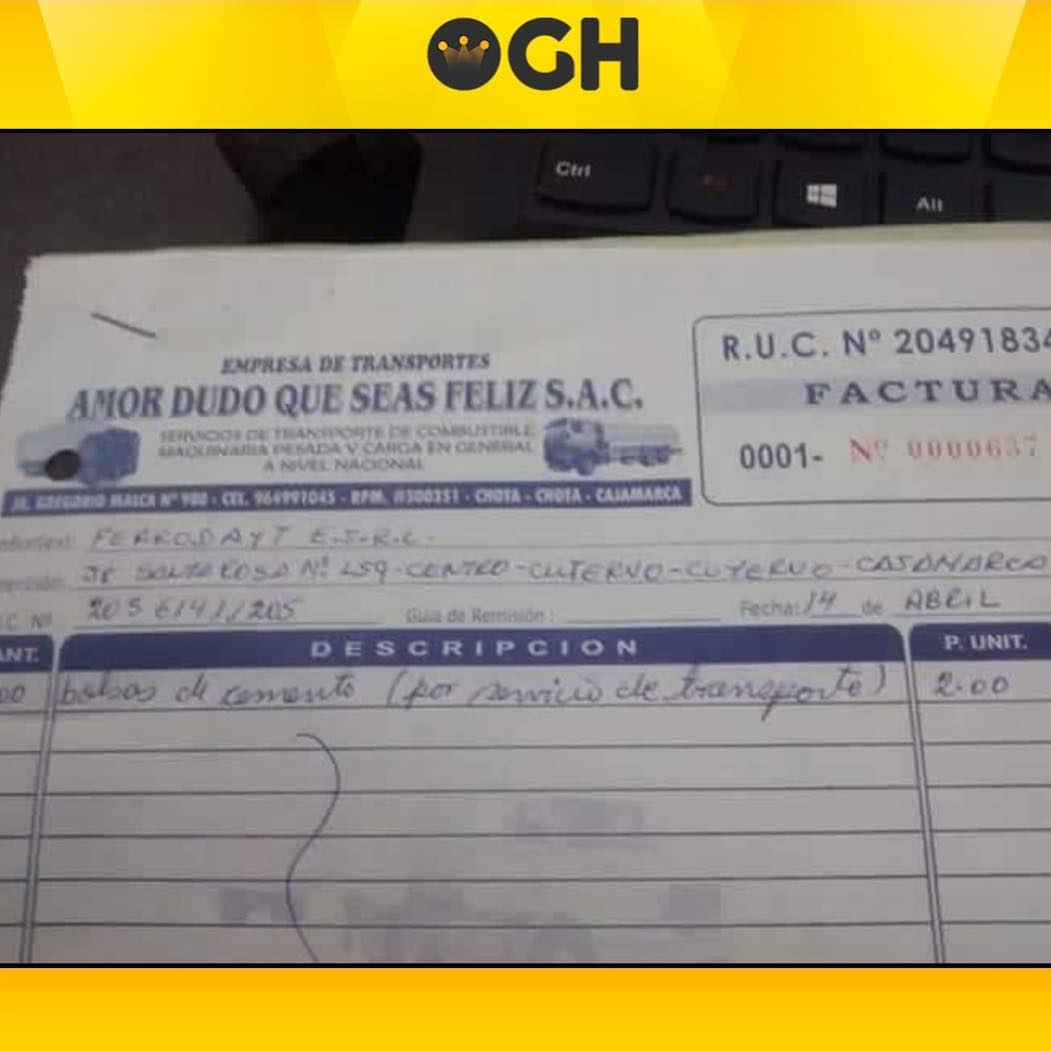 GH
Ctrl
Alt
EMPRESA DE TRANSPORTES
AMOR DUDO QUE SEAS FELIZ S.A.C.
SERVICIOS DE TRANSPORTE DE COMBUSTIBLE
MAQUINARIA PESADA Y CARGA EN GENERAL
A NIVEL NACIONAL
JR. GREGORIO MALCA Nº 980 - CEL. 964997045 - RPM. #300351 - CHOTA - CHOTA - CAJAMARCA
R.U.C. Nº 20491834
FACTURA
0001- Nº 0000637
FERRODAYT E.I.R.L.
Nº 259-CENTRO-CUTERVO-CUTERVO-CAJAMARCA
C. Nº 20561411205 Guia de Remisión : Fecha: 14 de ABRIL
ANT. DESCRIPCION P. UNIT.
00 bolsas de cemento (por servicio de transporte) 2.00